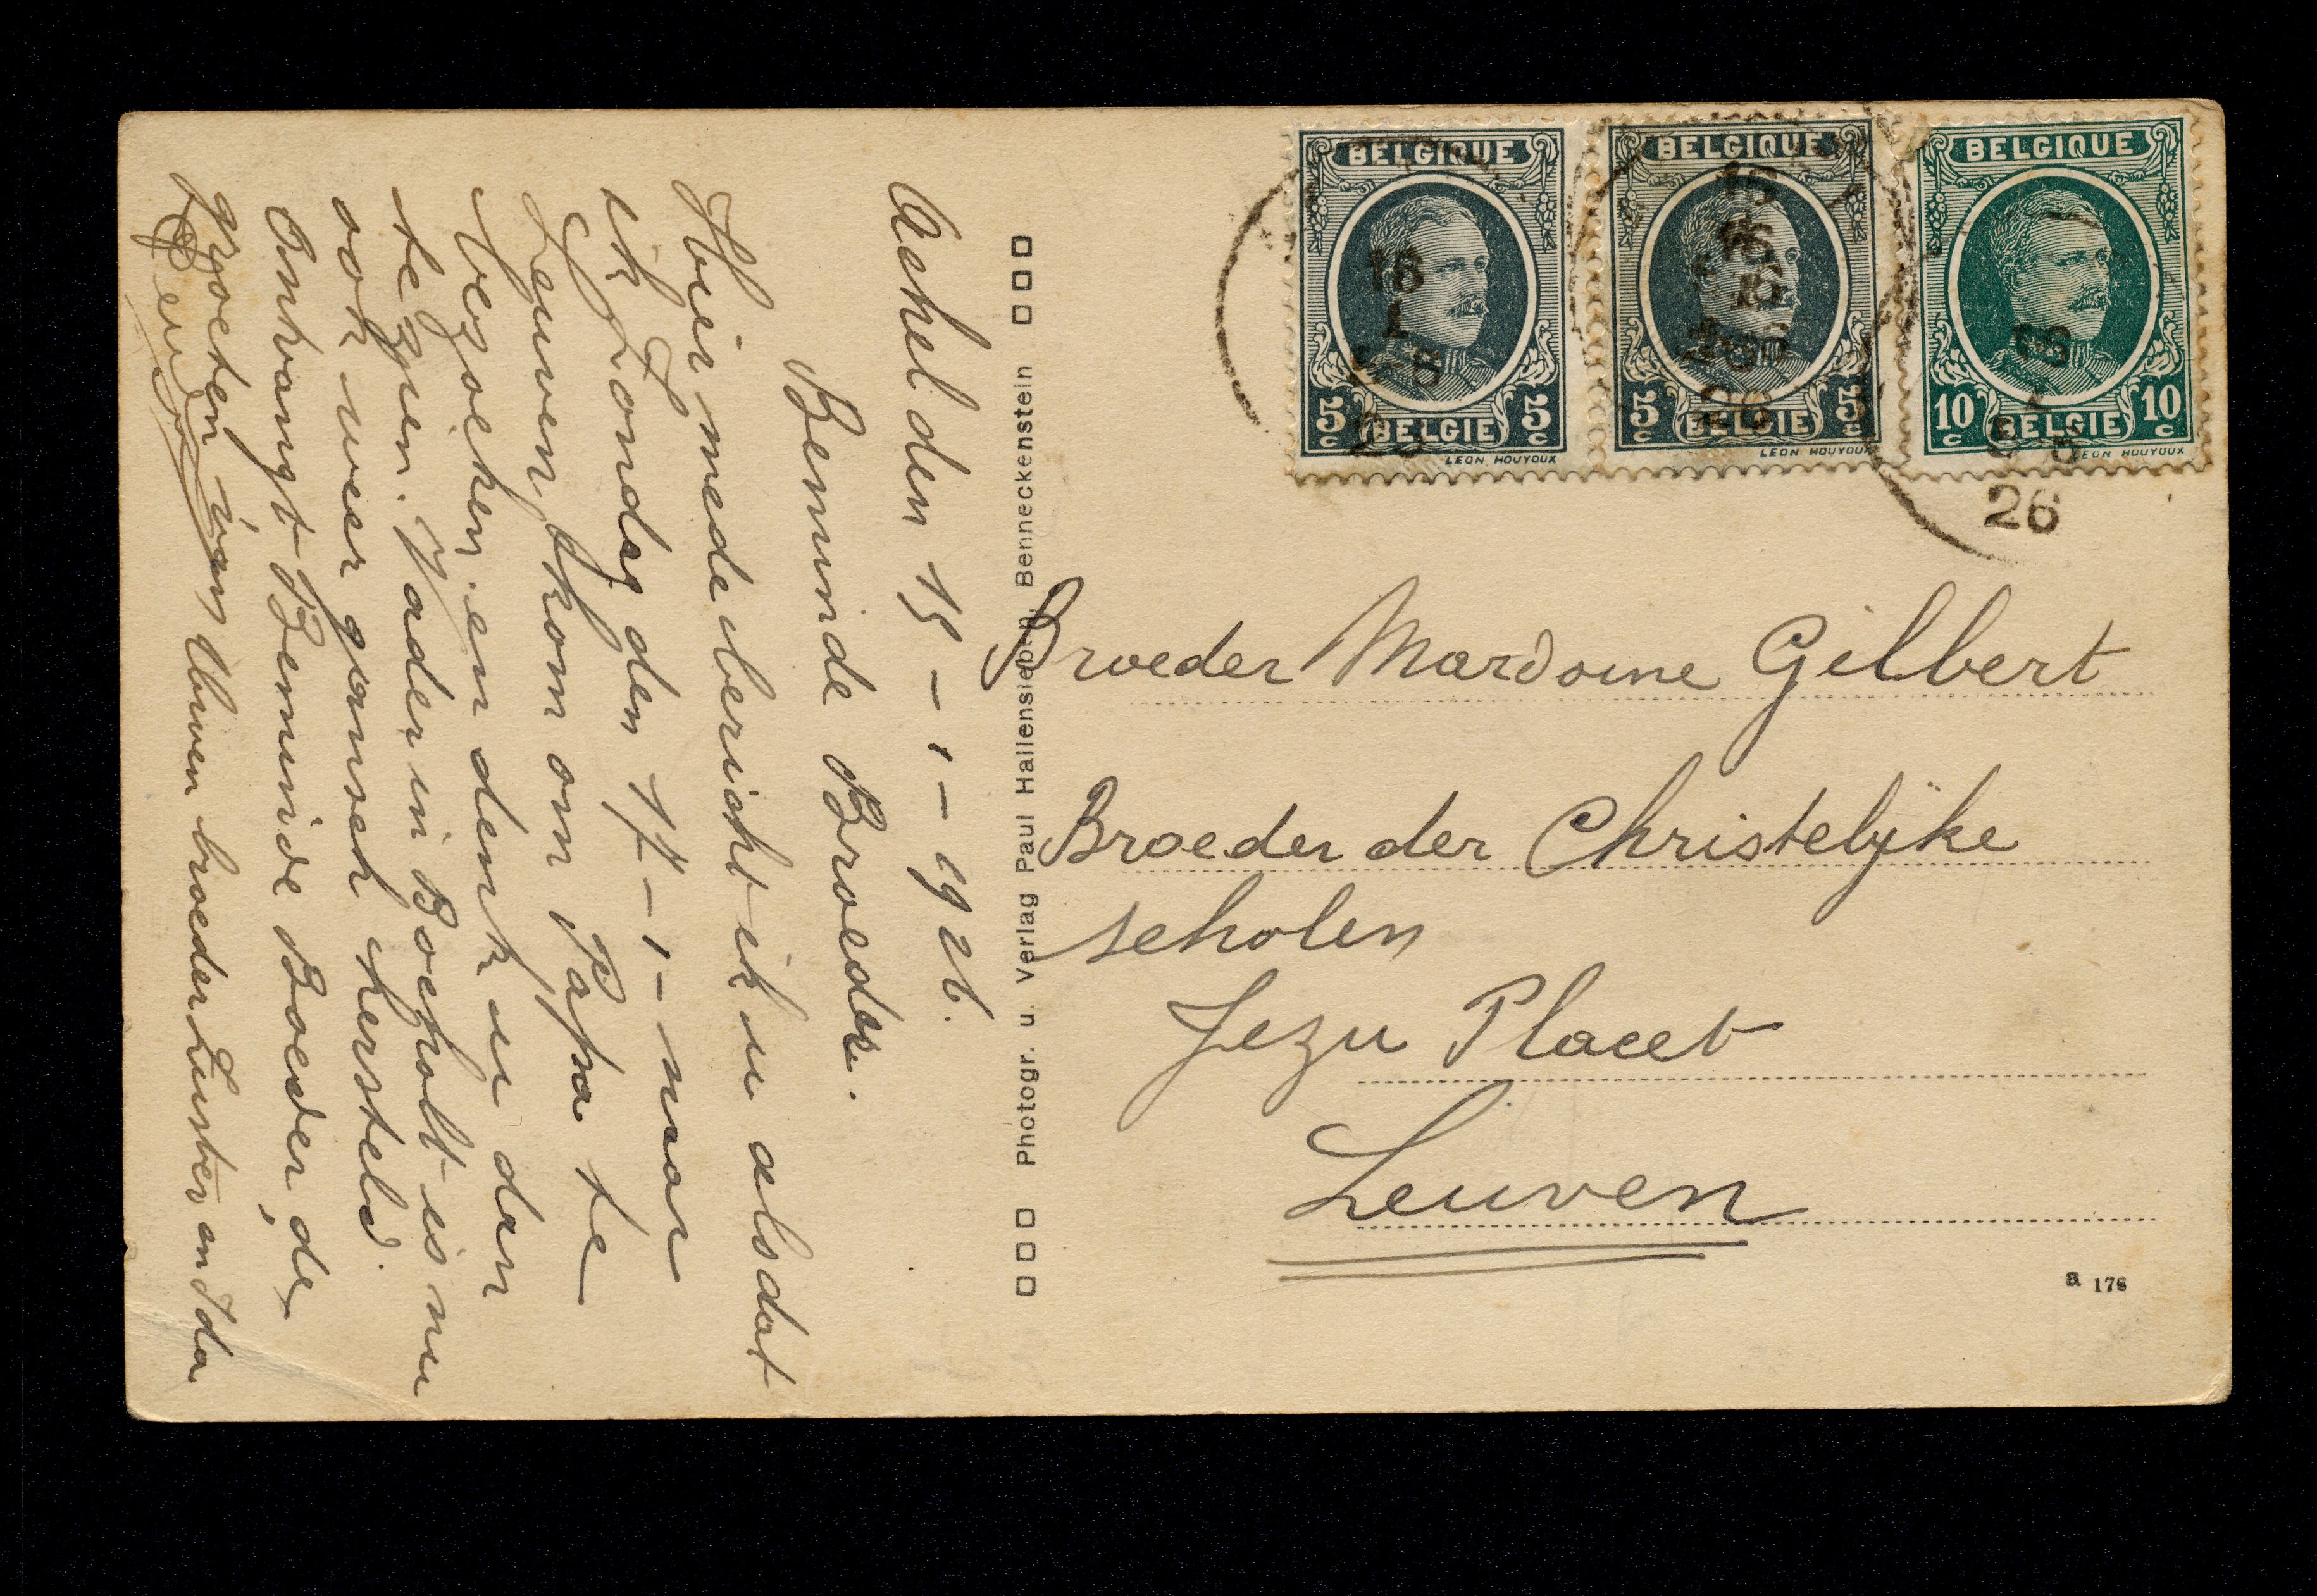 Achel den 15 - 1 - 1926.
Beminde Broeder.
Hiermede bericht ik u alsdat
ik Zondag den 17 - 1 - naar
Leuven kom om Papa te
bezoeken, en denk u dan
te zien. Vader in Bocholt is nu
ook weer gansch hersteld.
Ontvangt Beminde Broeder, de
groeten van Uwen broeder Zuster en Ida
Photogr. u. Verlag Paul Hallensleben, Benneckenstein
BELGIQUE
5c BELGIE 5c
LEON HOUYOUX
BELGIQUE
5c BELGIE 5c
LEON HOUYOUX
BELGIQUE
10c BELGIE 10c
LEON HOUYOUX
26
Broeder Mardoine Gilbert
Broeder der Christelijke
scholen
Jezu Placet
Leuven
a 176